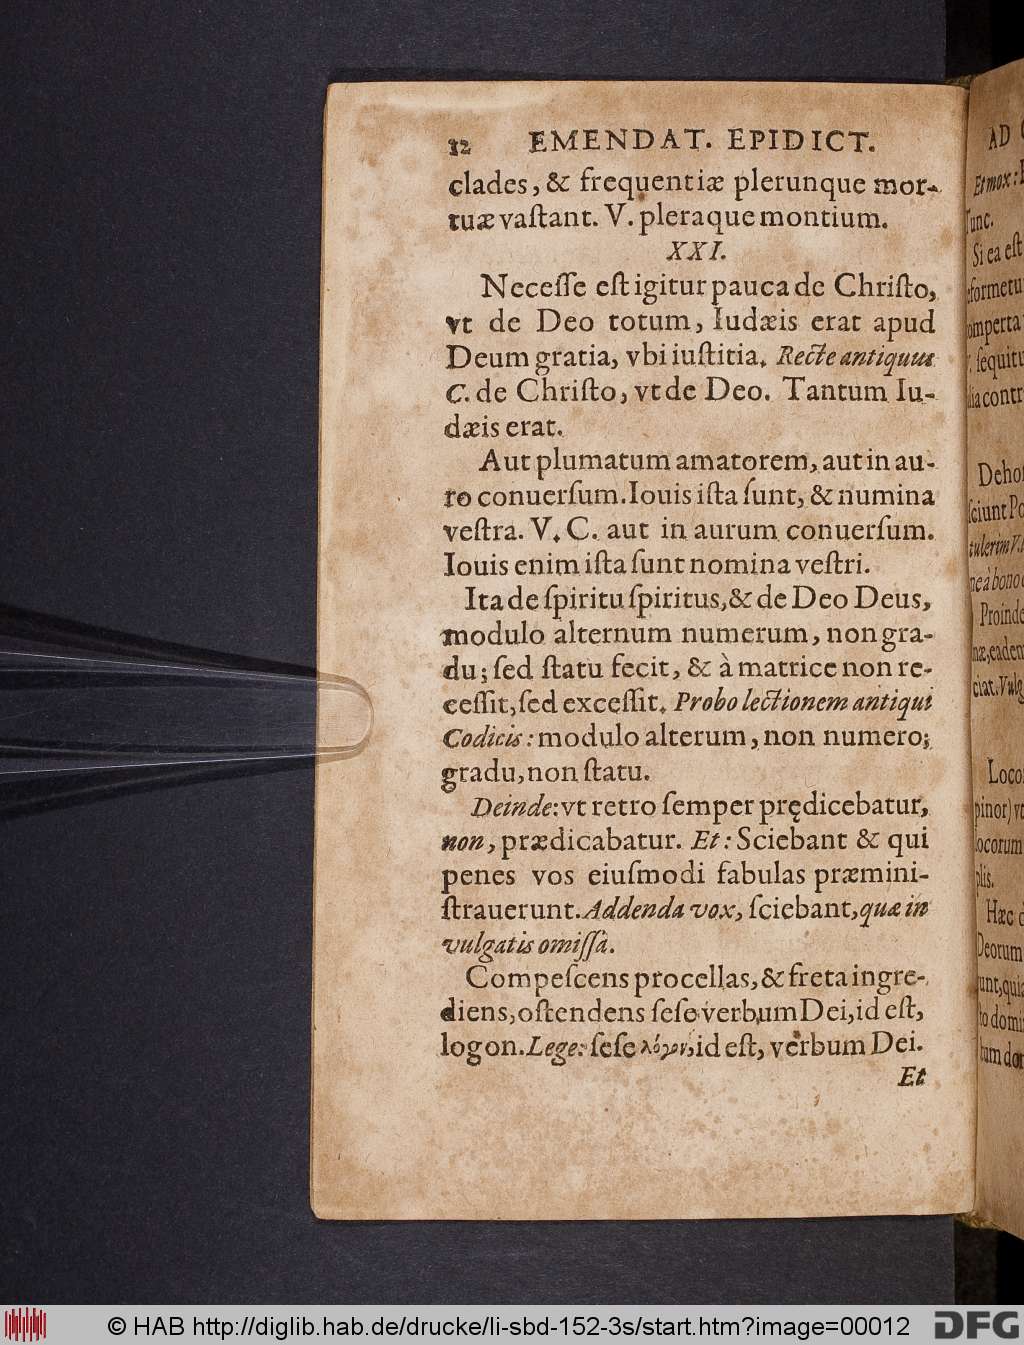 12 EMENDAT. EPIDICT.
clades, & frequentiæ plerunque mor-
tuæ vaſtant. V. pleraque montium.
XXI.
Neceſſe eſt igitur pauca de Chriſto,
vt de Deo totum, Iudæis erat apud
Deum gratia, vbi iuſtitia. Recte antiquus
C. de Chriſto, vt de Deo. Tantum Iu-
dæis erat.
Aut plumatum amatorem, aut in au-
ro conuerſum. Iouis iſta ſunt, & numina
veſtra. V. C. aut in aurum conuerſum.
Iouis enim iſta ſunt nomina veſtri.
Ita de ſpiritu ſpiritus, & de Deo Deus,
modulo alternum numerum, non gra-
du; ſed ſtatu fecit, & à matrice non re-
ceſſit, ſed exceſſit. Probo lectionem antiqui
Codicis: modulo alterum, non numero;
gradu, non ſtatu.
Deinde: vt retro ſemper prędicebatur,
non, prædicabatur. Et: Sciebant & qui
penes vos eiuſmodi fabulas præmini-
ſtrauerunt. Addenda vox, ſciebant, quæ in
vulgatis omiſſa.
Compeſcens procellas, & freta ingre-
diens, oſtendens ſeſe verbum Dei, id eſt,
logon. Lege: ſeſe λόγον, id eſt, verbum Dei.
Et
AD
Et mox:
Tunc.
Si ea eſt
Dehor
Proinde
Haec
Deorum
© HAB http://diglib.hab.de/drucke/li-sbd-152-3s/start.htm?image=00012
DFG